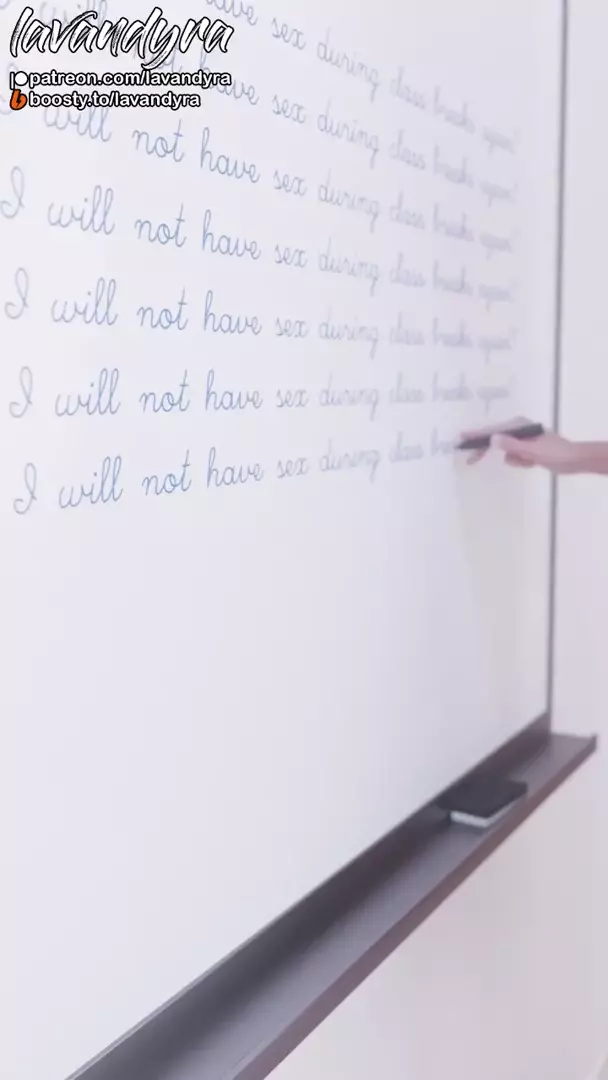 lavandyra
patreon.com/lavandyra
boosty.to/lavandyra
will have sex during class breaks again!
will not have sex during class breaks again!
I will not have sex during class breaks again!
I will not have sex during class breaks again!
I will not have sex during class breaks again!
I will not have sex during class breaks again!
I will not have sex during class